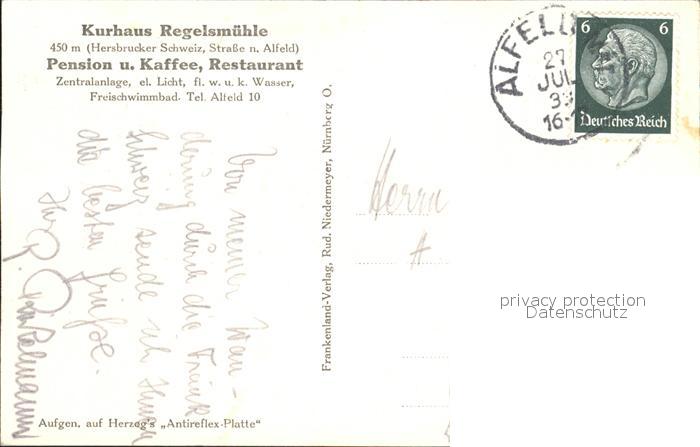 Kurhaus Regelsmühle
450 m (Hersbrucker Schweiz, Straße n. Alfeld)
Pension u. Kaffee, Restaurant
Zentralanlage, el. Licht, fl. w. u. k. Wasser,
Freischwimmbad. Tel. Alfeld 10
Von meiner Wan-
derung durch die Fränk
Schweiz sende ich Ihnen
die besten Grüße.
Ihr
Aufgen. auf Herzog's „Antireflex-Platte"
Frankenland-Verlag, Rud. Niedermeyer, Nürnberg O.
ALFELD
27
JUL
39
16-
6 6
Deutsches Reich
Herrn
A
privacy protection
Datenschutz